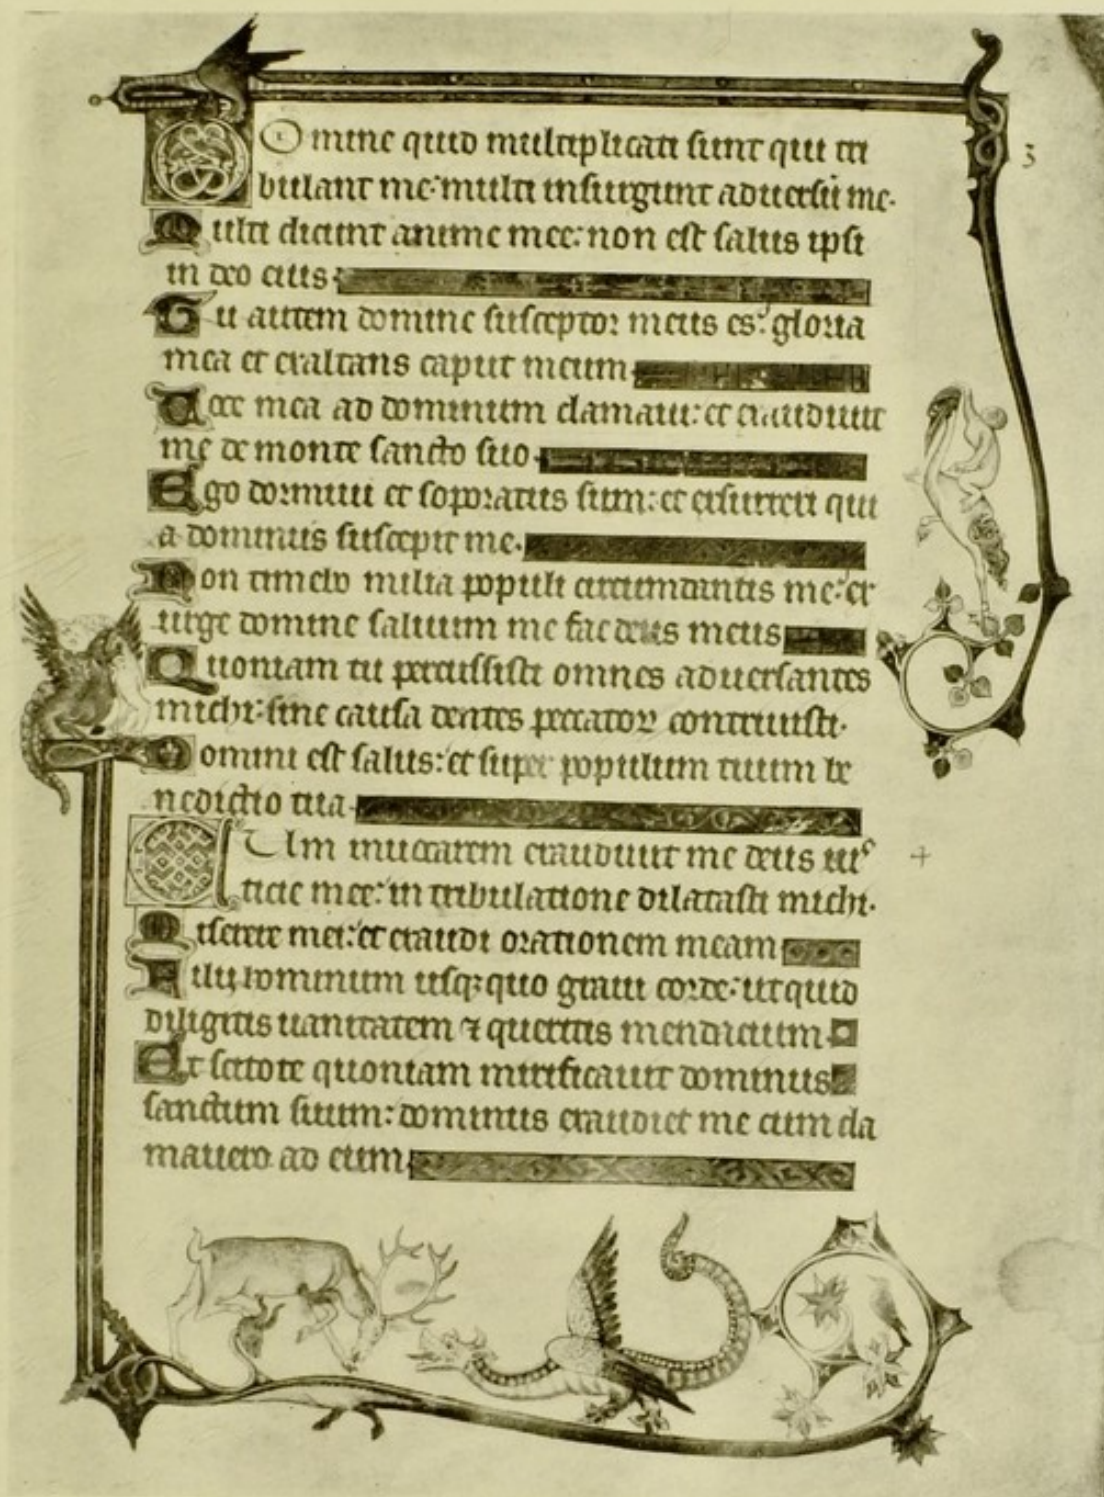 Domine quid multiplicati sunt qui tri
bulant me: multi insurgunt aduersū me.
Multi dicunt anime mee: non est salus ipsi
in deo eius.
Tu autem domine susceptor meus es: gloria
mea et exaltans caput meum.
Uoce mea ad dominum clamaui: et exaudiuit
me de monte sancto suo.
Ego dormiui et soporatus sum: et exsurrexi qui
a dominus suscepit me.
Non timebo milia populi circumdantis me: ex
urge domine saluum me fac deus meus
Quoniam tu percussisti omnes aduersantes
michi: sine causa dentes peccatoꝝ contriuisti.
Domini est salus: et super populum tuum be
nedictio tua.
CUm inuocarem exaudiuit me deus ius
ticie mee: in tribulatione dilatasti michi.
Miserere mei: et exaudi orationem meam
Filij hominum usqꝫquo graui corde: ut quid
diligitis uanitatem ⁊ queritis mendacium.
Et scitote quoniam mirificauit dominus
sanctum suum: dominus exaudiet me cum cla
mauero ad eum.
3